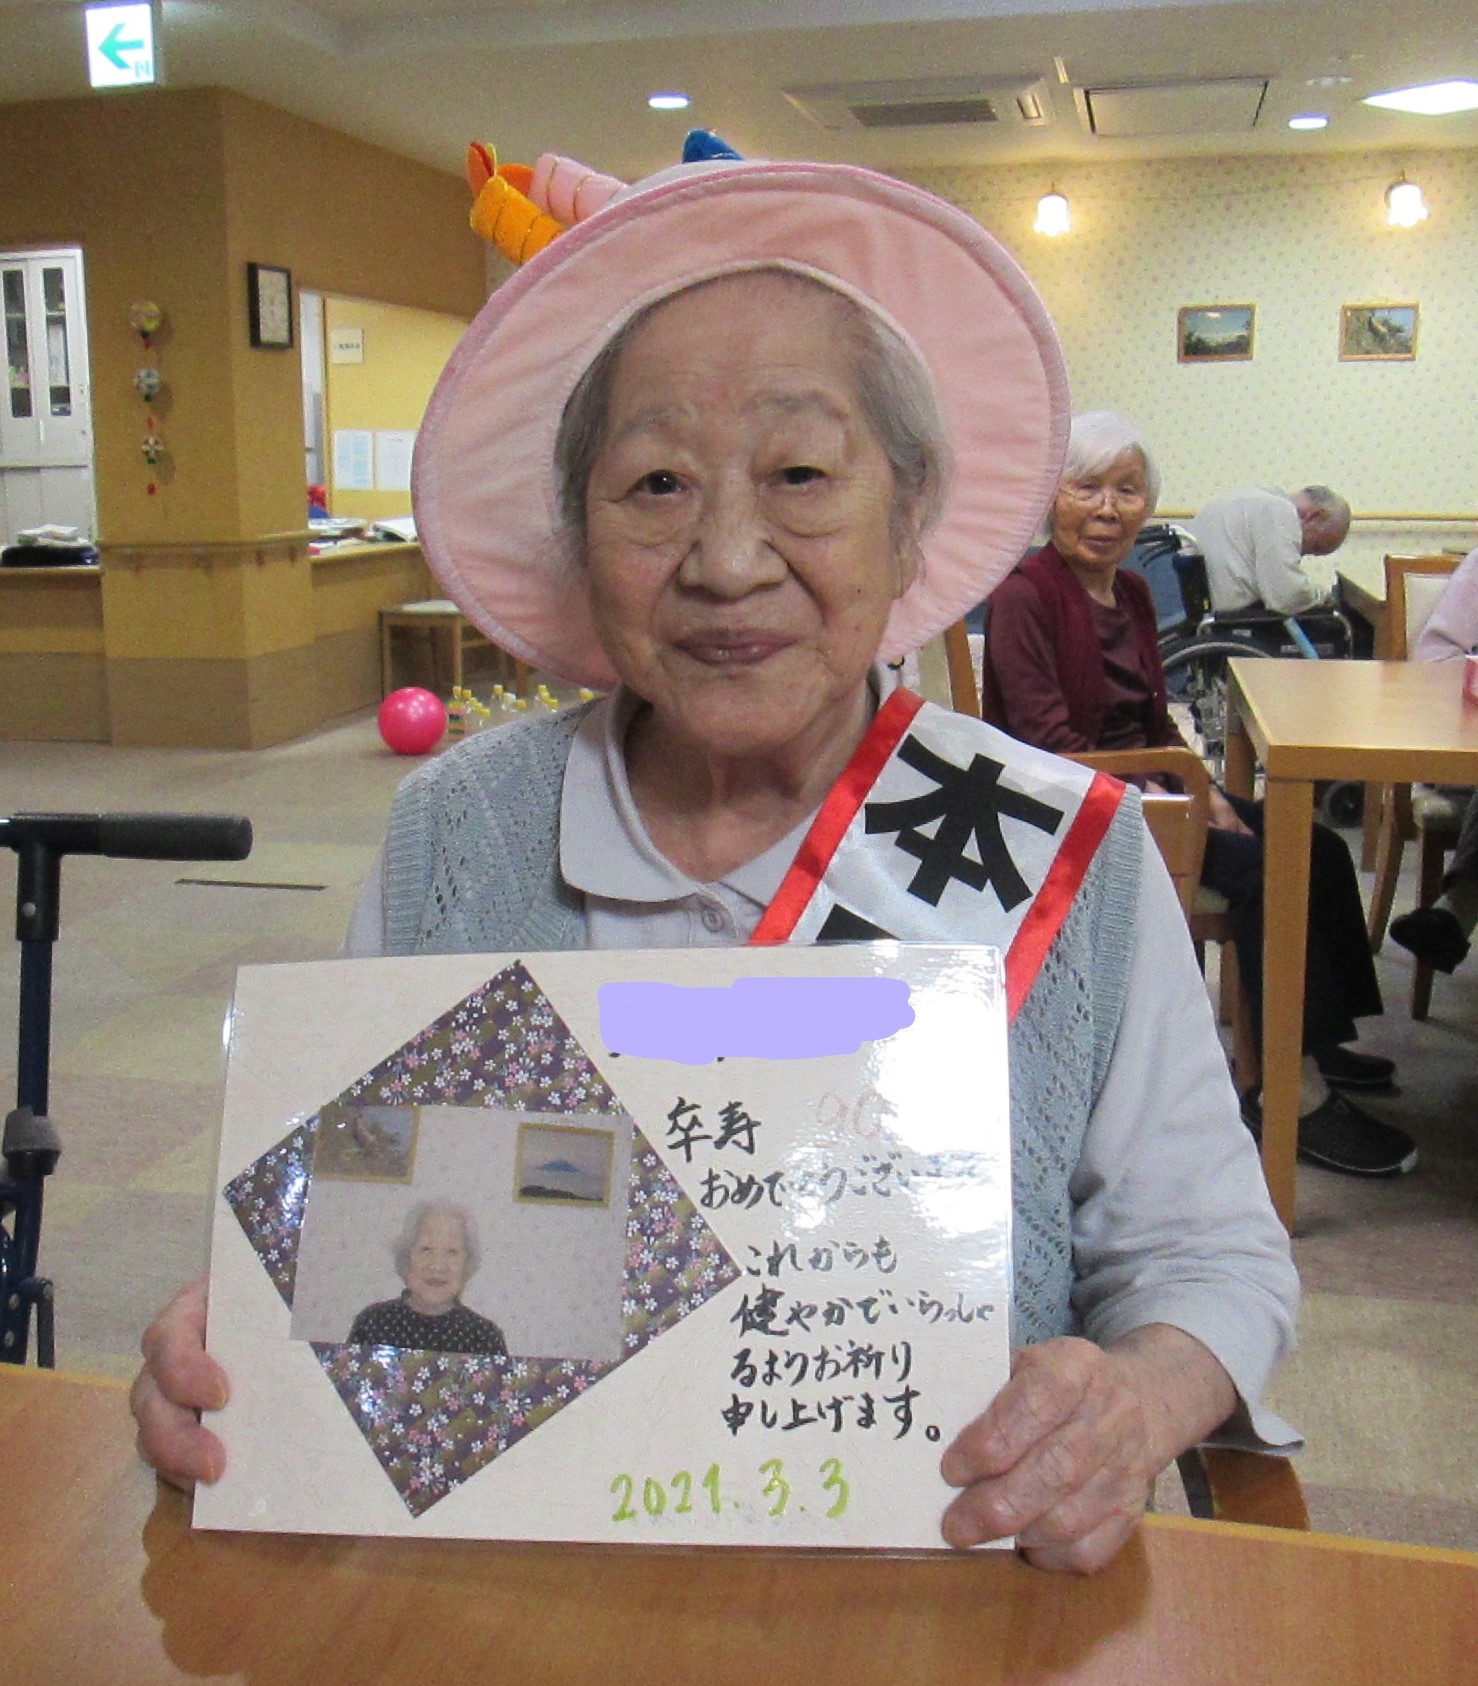 本
卒寿 90
おめでとうございます
これからも
健やかでいらっしゃ
るようお祈り
申し上げます。
2021.3.3